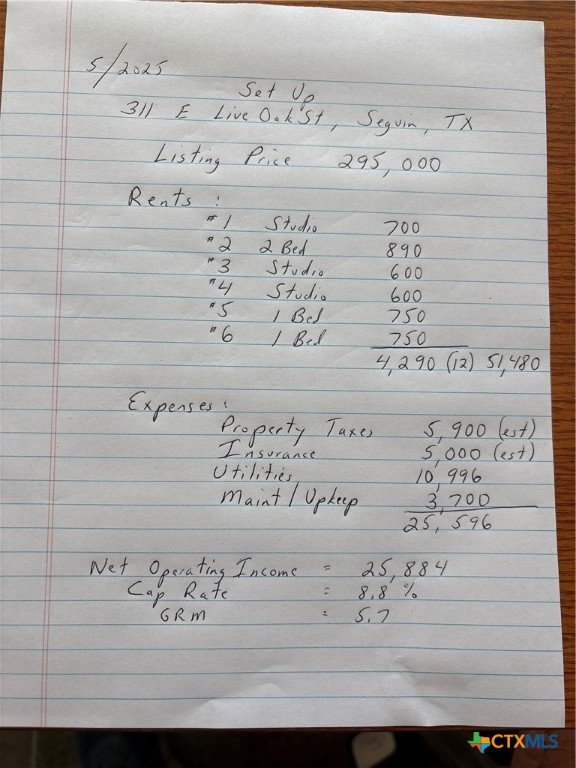 5/2025
Set Up
311 E Live Oak St, Seguin, TX
Listing Price 295,000
Rents :
#1 Studio 700
#2 2 Bed 890
#3 Studio 600
#4 Studio 600
#5 1 Bed 750
#6 1 Bed 750
4,290 (12) 51,480
Expenses :
Property Taxes 5,900 (est)
Insurance 5,000 (est)
Utilities 10,996
Maint / Upkeep 3,700
25,596
Net Operating Income = 25,884
Cap Rate = 8.8 %
GRM = 5.7
CTXMLS